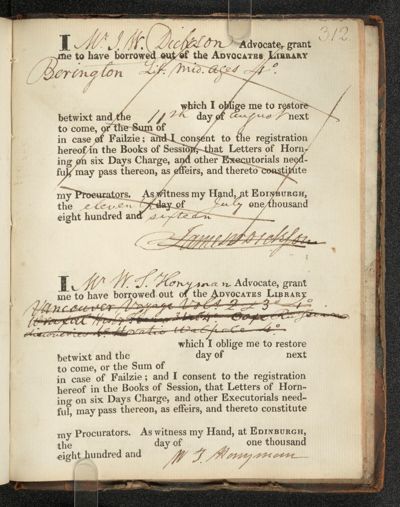 312
I Mr J. W. Dickson Advocate, grant
me to have borrowed out of the ADVOCATES LIBRARY
Berington Lit. Mid. Ages 4o.
which I oblige me to restore
betwixt and the 11th day of August next
to come, or the Sum of
in case of Failzie; and I consent to the registration
hereof in the Books of Session, that Letters of Horn-
ing on six Days Charge, and other Executorials need-
ful, may pass thereon, as effeirs, and thereto constitute
my Procurators. As witness my Hand, at EDINBURGH,
the eleventh day of July one thousand
eight hundred and sixteen
I Mr W. S. Honyman Advocate, grant
me to have borrowed out of the ADVOCATES LIBRARY
Vancouver Voyage Vols 2 & 3 4o.
Horatio Walpole 4o.
which I oblige me to restore
betwixt and the day of next
to come, or the Sum of
in case of Failzie; and I consent to the registration
hereof in the Books of Session, that Letters of Horn-
ing on six Days Charge, and other Executorials need-
ful, may pass thereon, as effeirs, and thereto constitute
my Procurators. As witness my Hand, at EDINBURGH,
the day of one thousand
eight hundred and
W. S. Honyman